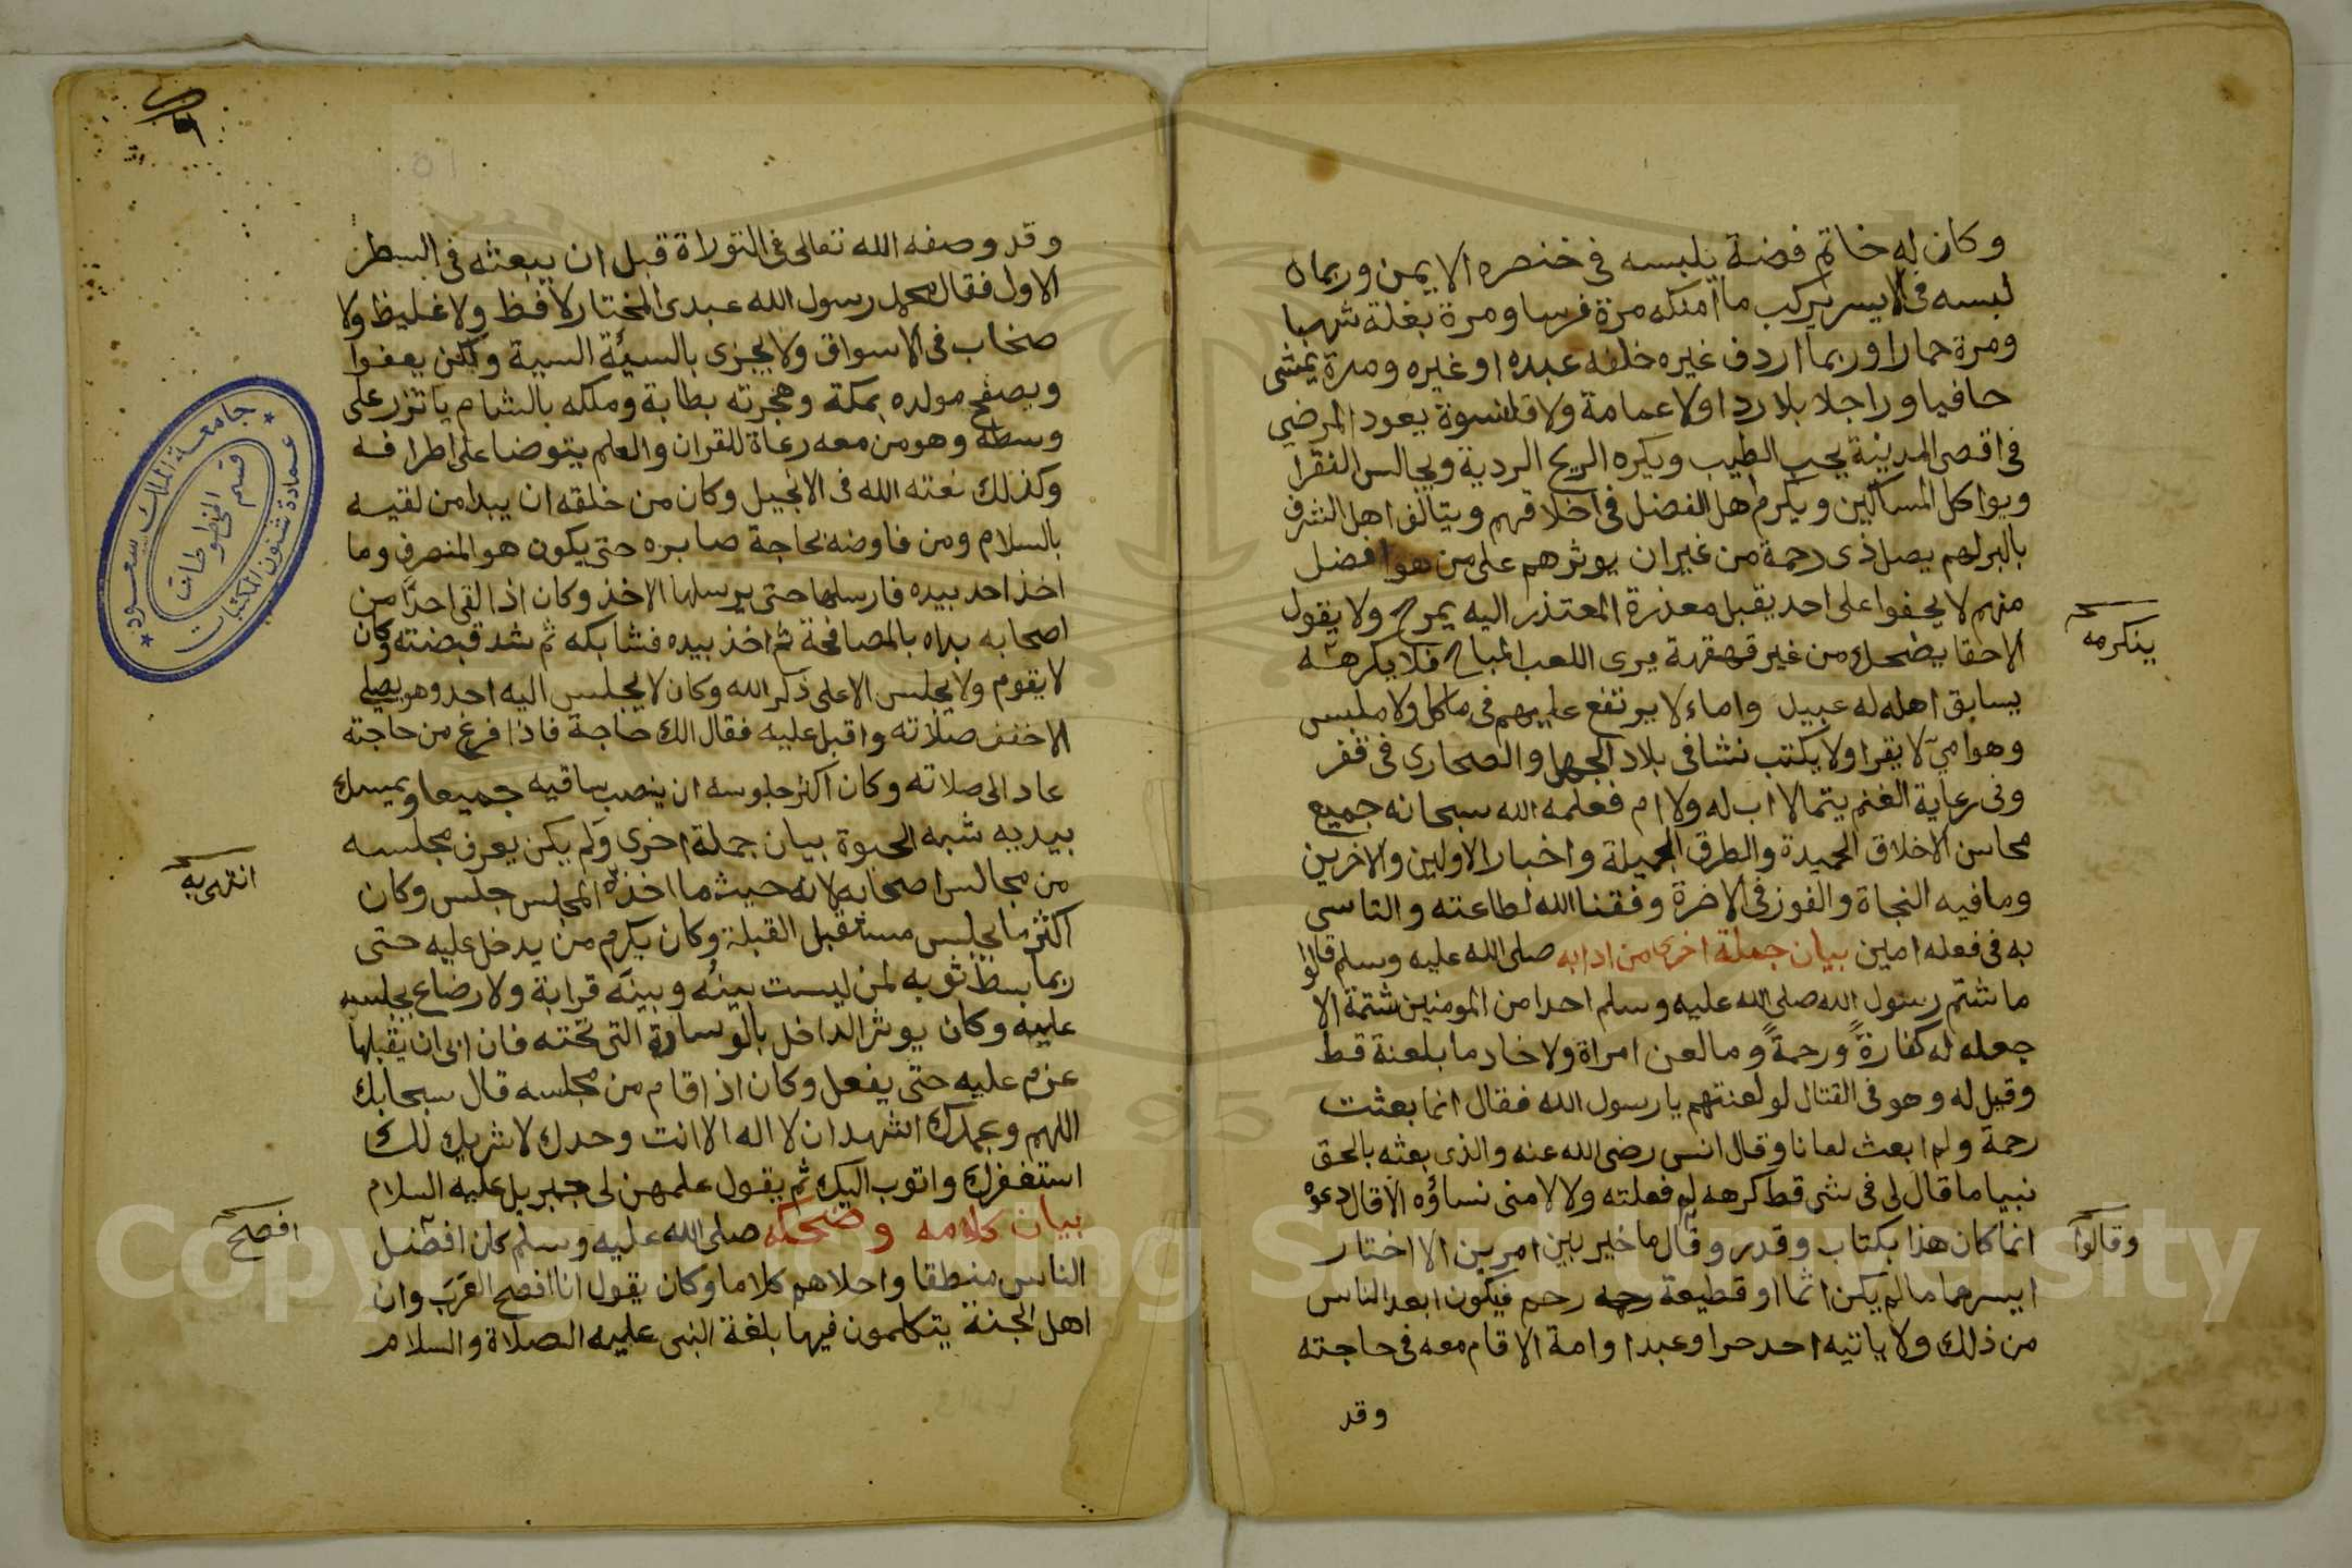 وكان له خاتم فضة يلبسه في خنصره الايمن وربما ه
لبسه في الايسر يركب ما امكنه مرة فرسا ومرة بغلة شهبا
ومرة حمارا وربما اردف غيره خلفه عبده او غيره ومرة يمشي
حافيا وراجلا بلا ردا ولا عمامة ولا قلنسوة يعود المرضي
في اقصى المدينة يحب الطيب ويكره الريح الردية ويجالس الفقرا
ويواكل المساكين ويكرم اهل الفضل في اخلاقهم ويتالف اهل الشرف
بالبر لهم يصل ذى رحمة من غير ان يوثرهم على من هو افضل
منهم لا يجفوا على احد يقبل معذرة المعتذر اليه يمرح ولا يقول
الاحقا يضحك من غير قهقهة يرى اللعب المباح فلا يكرهه
يسابق اهله له عبيد واماء لا يرتفع عليهم في ماكل ولا ملبس
وهو امي لا يقرا ولا يكتب نشا في بلاد الجهل والصحاري في فقر
وفى رعاية الغنم يتما لا اب له ولا ام فعلمه الله سبحانه جميع
محاسن الاخلاق الحميدة والطرق الجميلة واخبار الاولين والاخرين
وما فيه النجاة والفوز في الاخرة وفقنا الله لطاعته والتاسي
به في فعله امين بيان جملة اخرى من ادابه صلى الله عليه وسلم قالوا
ما شتم رسول الله صلى الله عليه وسلم احدا من المومنين شتمة الا
جعله له كفارةً ورحمةً وما لعن امراة ولا خادما بلعنة قط
وقيل له وهو في القتال لو لعنتهم يا رسول الله فقال انما بعثت
رحمة ولم ابعث لعانا وقال انس رضى الله عنه والذى بعثه بالحق
نبيا ما قال لى فى شى قط كرهه لم فعلته ولا لامنى نساؤه الا قال دعوه
انما كان هذا بكتاب وقدر وقال ما خير بين امرين الا اختار
ايسرهما ما لم يكن اثما او قطيعة رحم فيكون ابعد الناس
من ذلك ولا ياتيه احد حر او عبد او امة الا قام معه في حاجته
وقد
ينكر مه
وقالوا
وقد وصفه الله تعالى في التوراة قبل ان يبعثه في السطر
الاول فقال محمد رسول الله عبدى المختار لا فظ ولا غليظ ولا
صخاب في الاسواق ولا يجزى بالسيئة السيية ولكن يعفوا
ويصفح مولده بمكة وهجرته بطابة وملكه بالشام ياتزر على
وسطه وهو من معه رعاة للقران والعلم يتوضا على اطرافه
وكذلك نعته الله في الانجيل وكان من خلقه ان يبدا من لقيه
بالسلام ومن فاوضه بحاجة صابره حتى يكون هو المنصرف وما
اخذ احد بيده فارسلها حتى يرسلها الاخذ وكان اذا لقى احدًا من
اصحابه بداه بالمصافحة ثم اخذ بيده فشابكه ثم شد قبضته وكان
لا يقوم ولا يجلس الا على ذكر الله وكان لا يجلس اليه احد وهو يصلي
الا خفف صلاته واقبل عليه فقال الك حاجة فاذا فرغ من حاجته
عاد الى صلاته وكان اكثر جلوسه ان ينصب ساقيه جميعا ويمسك
بيديه شبه الحبوة بيان جملة اخرى ولم يكن يعرف مجلسه
من مجالس اصحابه لانه حيث ما اخذه المجلس جلس وكان
اكثر ما يجلس مستقبل القبلة وكان يكرم من يدخل عليه حتى
ربما بسط ثوبه لمن ليست بينه وبينه قرابة ولا رضاع يجلسه
عليه وكان يوثر الداخل بالوسادة التى تحته فان ابى ان يقبلها
عزم عليه حتى يفعل وكان اذا قام من مجلسه قال سبحانك
اللهم وبحمدك اشهد ان لا اله الا انت وحدك لا شريك لك
استغفرك واتوب اليك ثم يقول علمهن لى جبريل عليه السلام
بيان كلامه وضحكه صلى الله عليه وسلم كان افضل
الناس منطقا واحلاهم كلاما وكان يقول انا افصح العرب وان
اهل الجنة يتكلمون فيها بلغة النبى عليه الصلاة والسلام
انتهى به
افصح
جامعة الملك سعود
عمادة شئون المكتبات
قسم المخطوطات
Copyright © King Saud University
1957